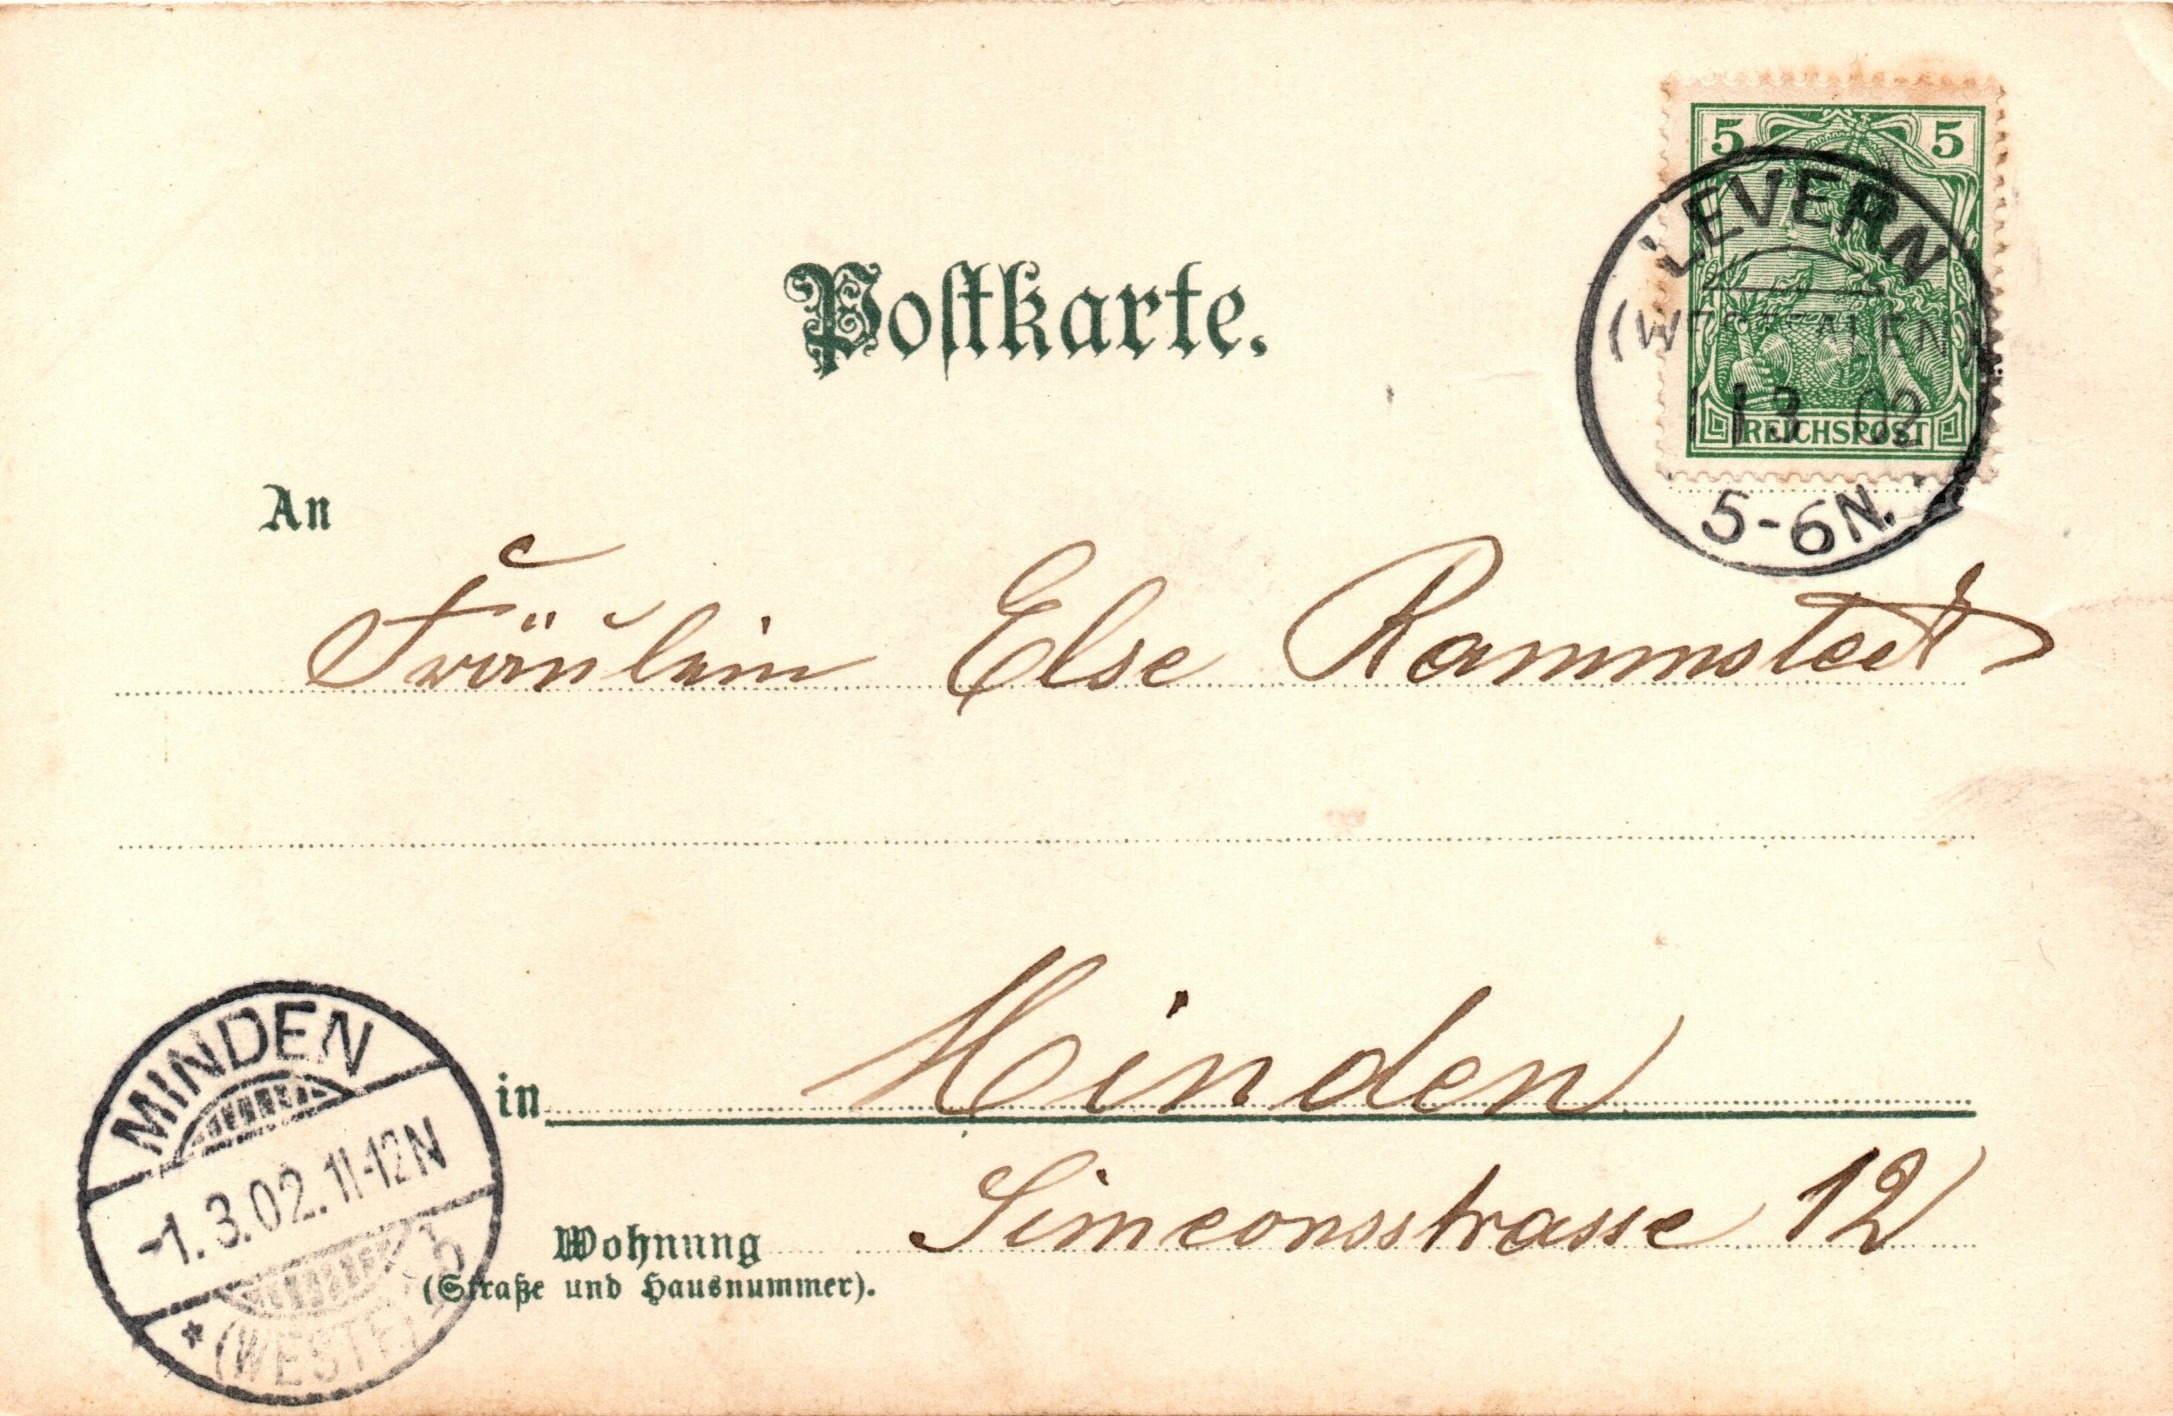 5 5
LEVERN
(WESTFALEN)
1 3 02
REICHSPOST
5-6N.
Postkarte.
An
Fräulein Else Rammstedt
MINDEN
-1.3.02.11-12N
* (WESTF.) b
in Minden
Wohnung Simeonsstrasse 12
(Straße und Hausnummer).